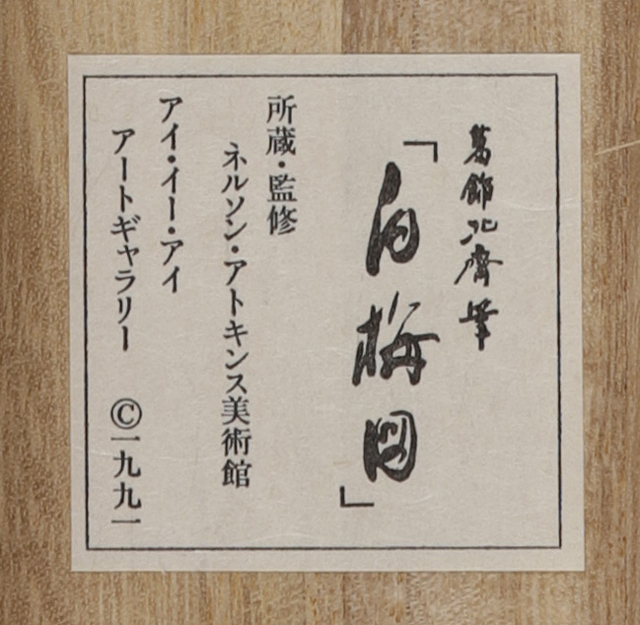 葛飾北齋筆
「白梅図」
所蔵・監修
ネルソン・アトキンス美術館
アイ・イー・アイ
アートギャラリー ©一九九一